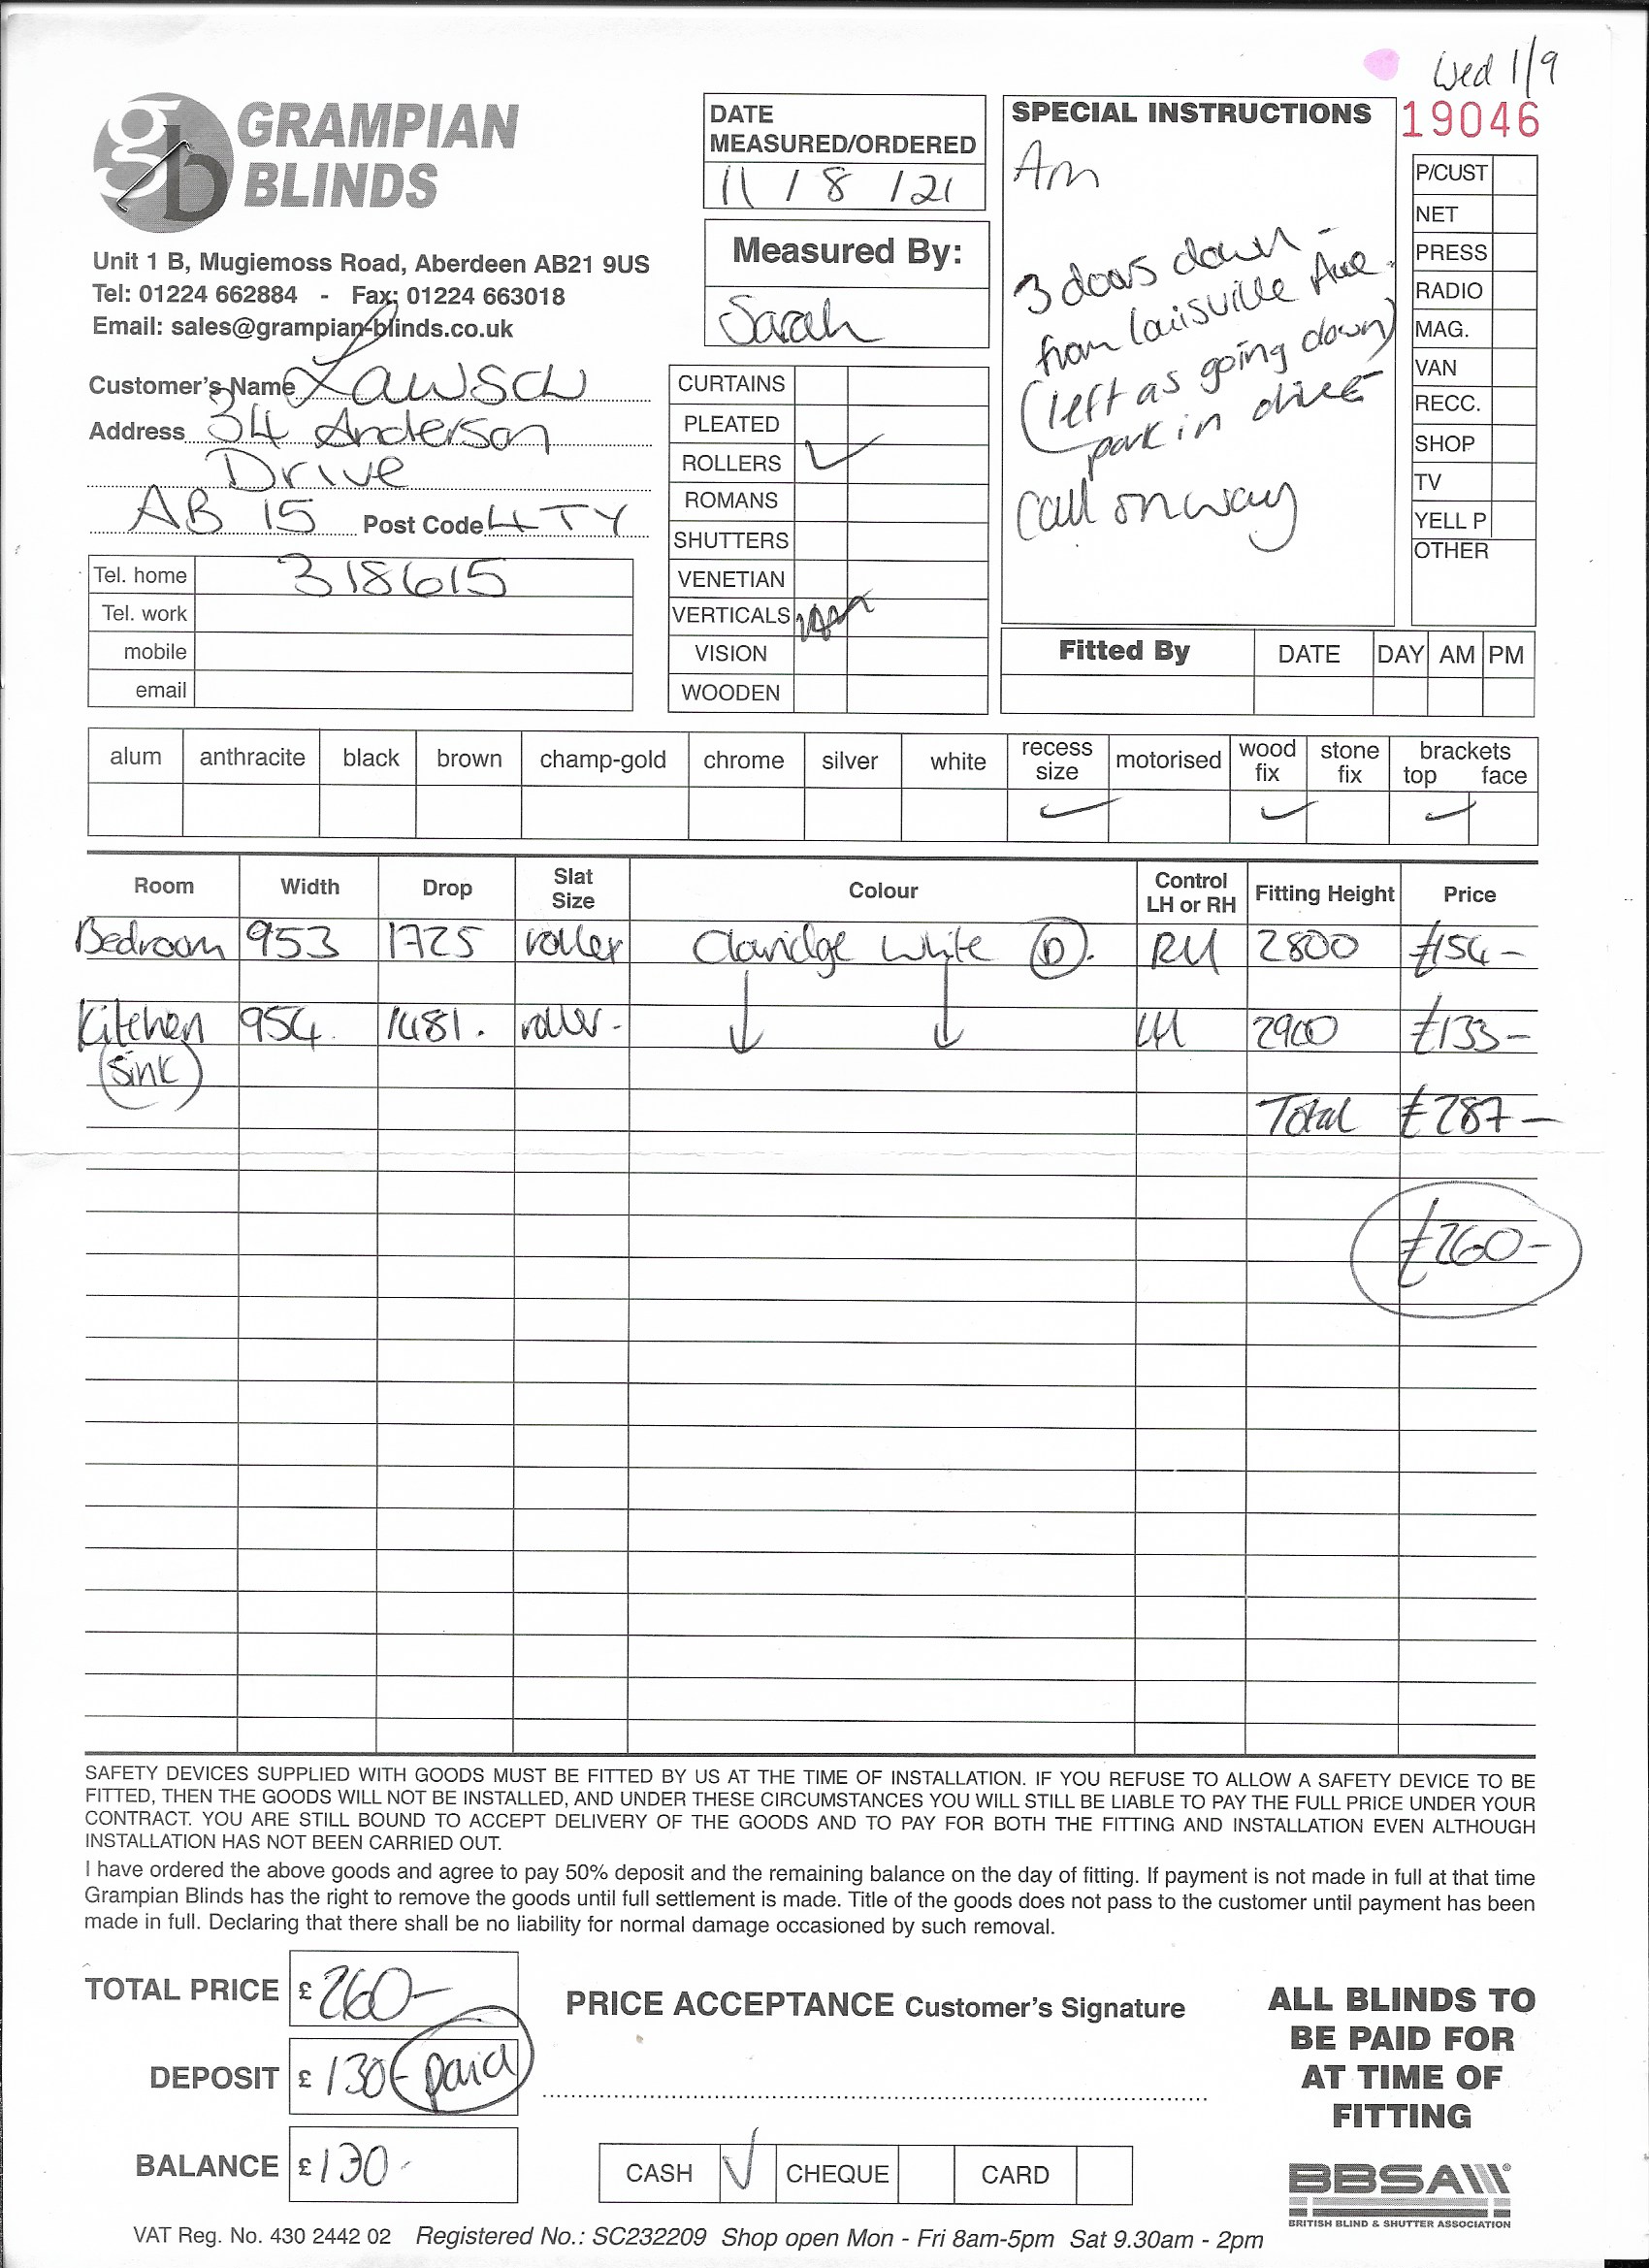 Wed 1/9
GRAMPIAN
BLINDS
gb
Unit 1 B, Mugiemoss Road, Aberdeen AB21 9US
Tel: 01224 662884 - Fax: 01224 663018
Email: sales@grampian-blinds.co.uk
Customer's Name Lawson
Address 34 Anderson
Drive
AB 15 Post Code 4TY
Tel. home 318615
Tel. work
mobile
email
DATE
MEASURED/ORDERED
11 / 8 / 21
Measured By:
Sarah
CURTAINS
PLEATED
ROLLERS ✓
ROMANS
SHUTTERS
VENETIAN
VERTICALS
VISION
WOODEN
SPECIAL INSTRUCTIONS
Am
3 doors down -
from Louisville Ave.
(left as going down)
park in drive
Call on way
19046
P/CUST
NET
PRESS
RADIO
MAG.
VAN
RECC.
SHOP
TV
YELL P
OTHER
Fitted By DATE DAY AM PM
alum anthracite black brown champ-gold chrome silver white recess size motorised wood fix stone fix brackets top face
✓ ✓ ✓
Room Width Drop Slat Size Colour Control LH or RH Fitting Height Price
Bedroom 953 1725 roller Claridge White (D). RH 2800 £154-
Kitchen 954. 1481. roller- ↓ ↓ LH 2900 £133-
(Sink)
Total £287-
£260-
SAFETY DEVICES SUPPLIED WITH GOODS MUST BE FITTED BY US AT THE TIME OF INSTALLATION. IF YOU REFUSE TO ALLOW A SAFETY DEVICE TO BE
FITTED, THEN THE GOODS WILL NOT BE INSTALLED, AND UNDER THESE CIRCUMSTANCES YOU WILL STILL BE LIABLE TO PAY THE FULL PRICE UNDER YOUR
CONTRACT. YOU ARE STILL BOUND TO ACCEPT DELIVERY OF THE GOODS AND TO PAY FOR BOTH THE FITTING AND INSTALLATION EVEN ALTHOUGH
INSTALLATION HAS NOT BEEN CARRIED OUT.
I have ordered the above goods and agree to pay 50% deposit and the remaining balance on the day of fitting. If payment is not made in full at that time
Grampian Blinds has the right to remove the goods until full settlement is made. Title of the goods does not pass to the customer until payment has been
made in full. Declaring that there shall be no liability for normal damage occasioned by such removal.
TOTAL PRICE £ 260-
DEPOSIT £ 130- paid
BALANCE £ 130-
PRICE ACCEPTANCE Customer's Signature
CASH ✓ CHEQUE CARD
ALL BLINDS TO
BE PAID FOR
AT TIME OF
FITTING
BBSA
BRITISH BLIND & SHUTTER ASSOCIATION
VAT Reg. No. 430 2442 02 Registered No.: SC232209 Shop open Mon - Fri 8am-5pm Sat 9.30am - 2pm